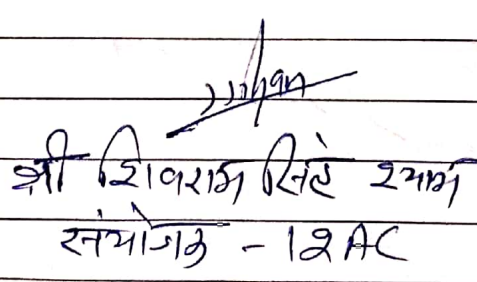 श्री शिवराम सिंह श्याम
संयोजक - IQAC